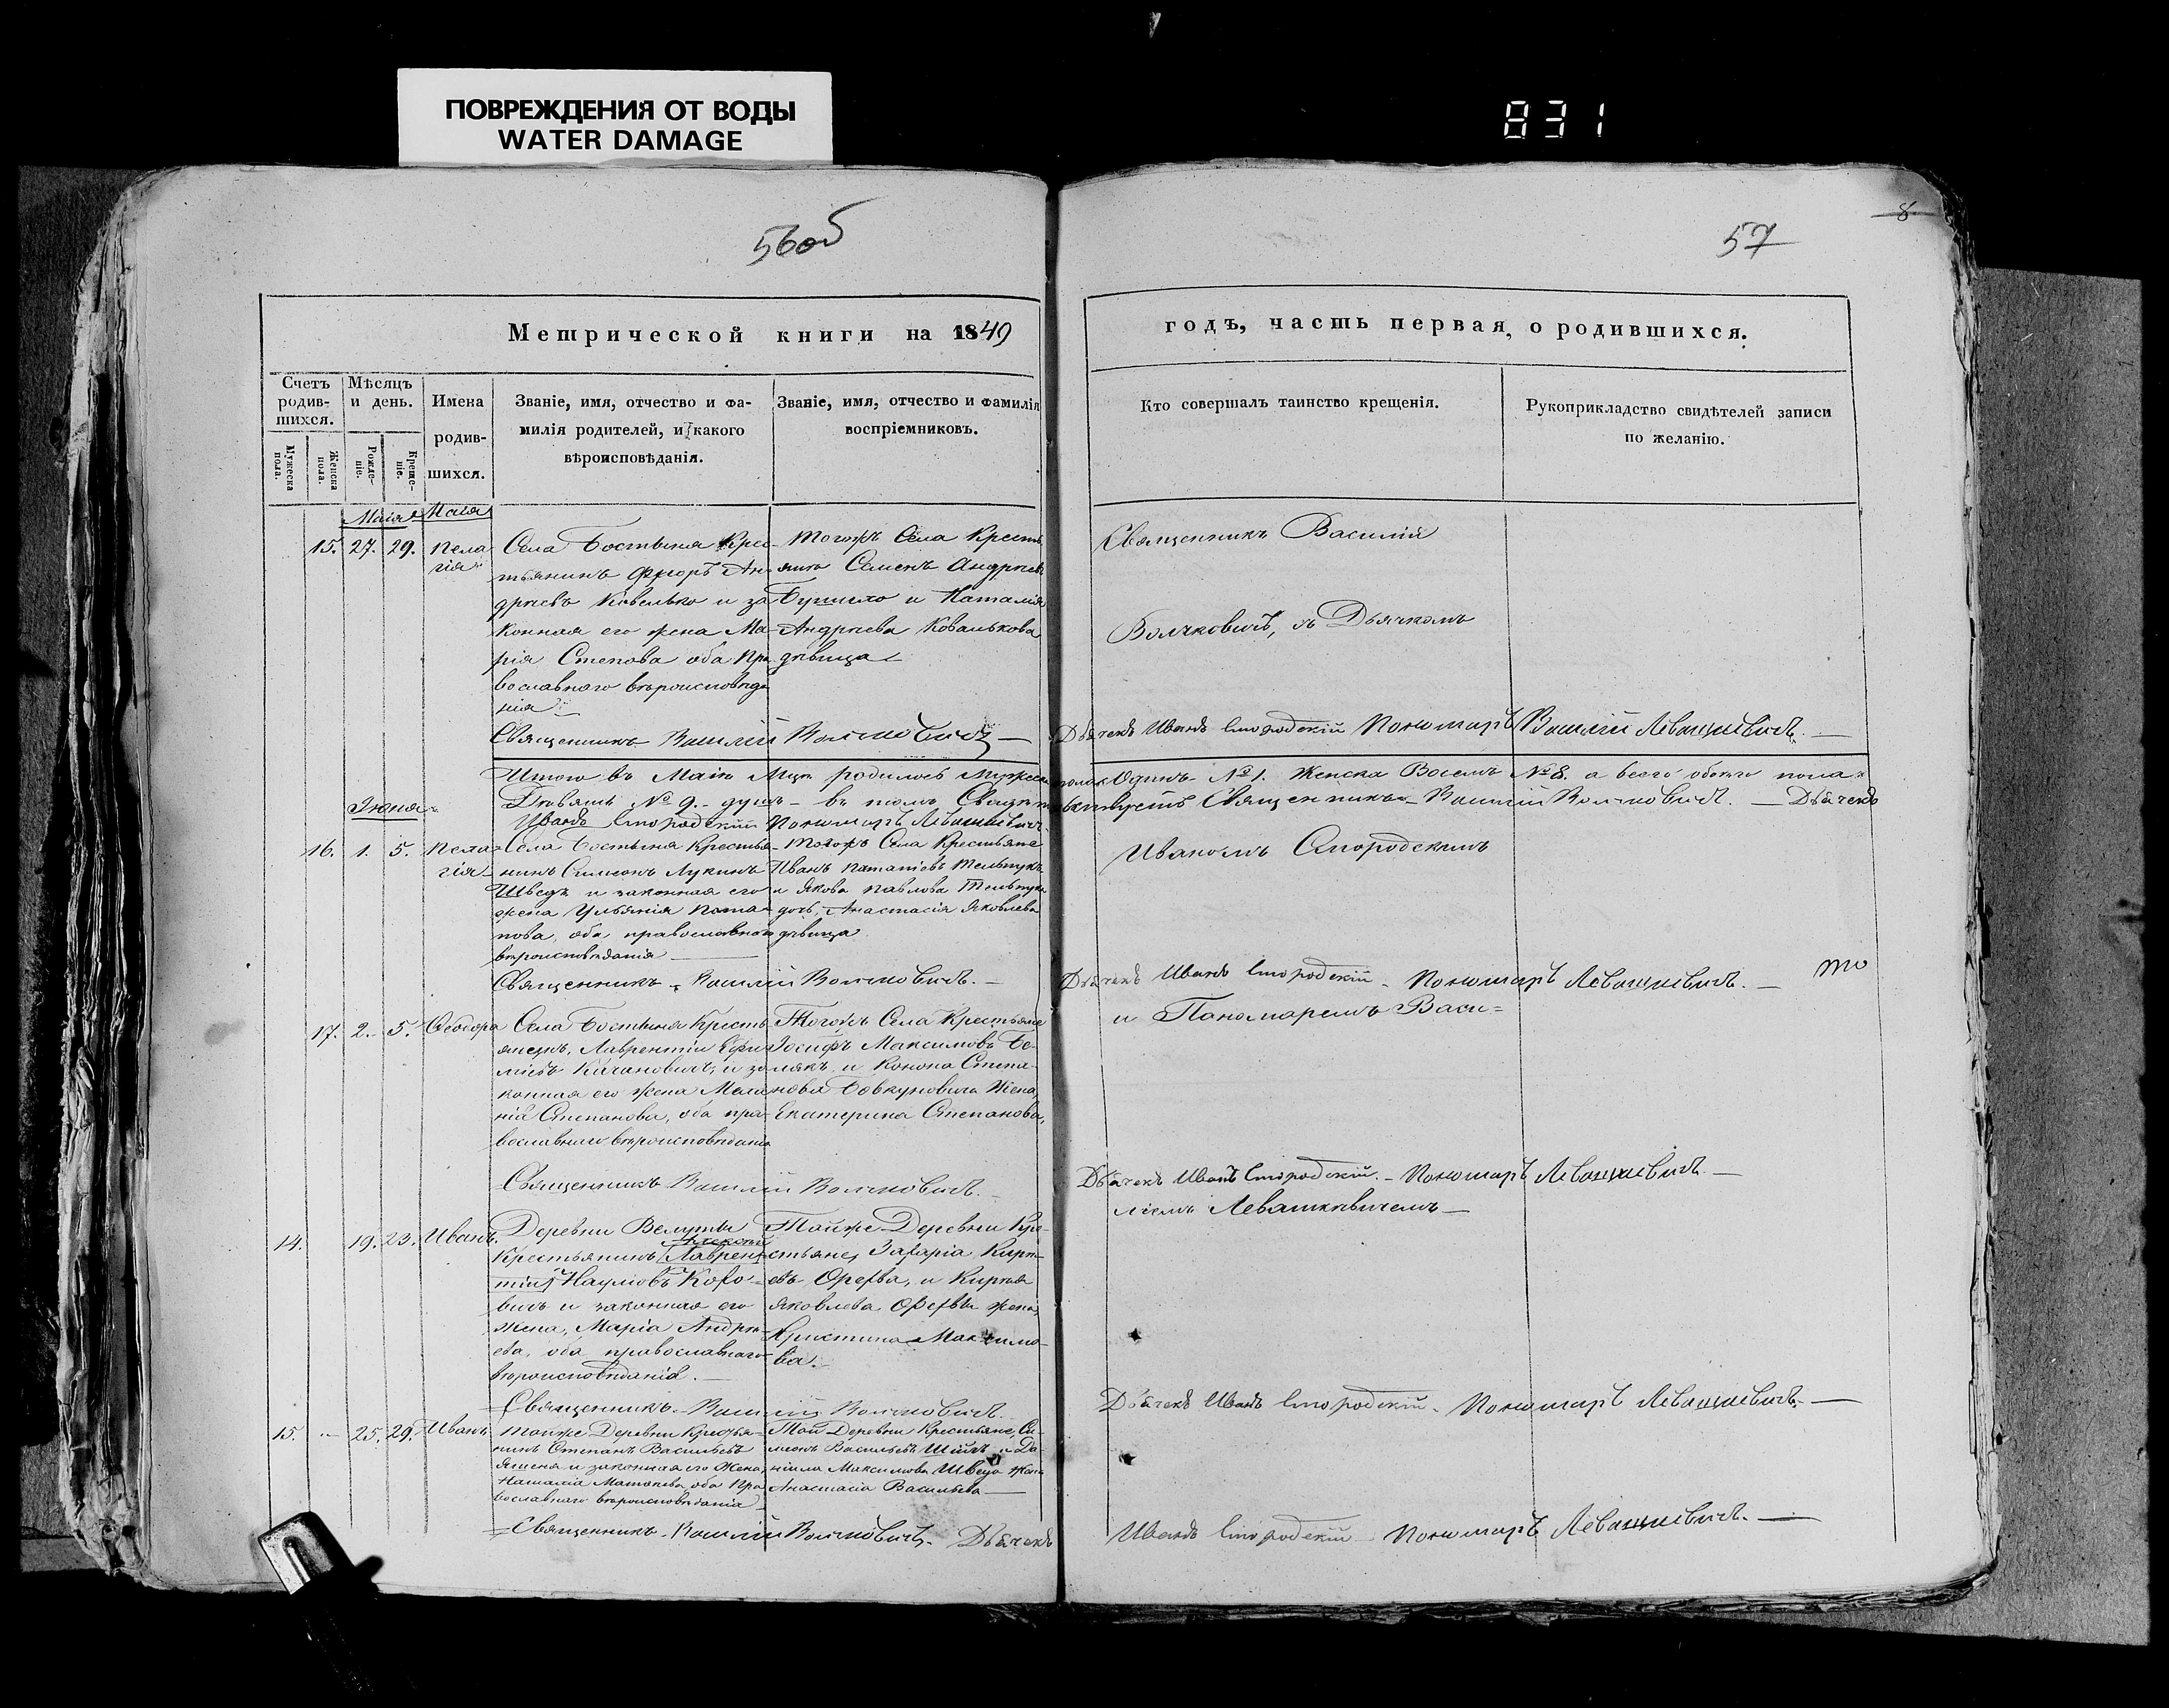 ПОВРЕЖДЕНИЯ ОТ ВОДЫ
WATER DAMAGE
831
56об
57
8
Метрической книги на 1849
годъ, часть первая, о родившихся.
Счетъ родив-
шихся.
Мужеска пола.
Женска пола.
Мѣсяцъ
и день.
Рожде-
ніе.
Креще-
ніе.
Имена
родив-
шихся.
Званіе, имя, отчество и фа-
милія родителей, и какого
вѣроисповѣданія.
Званіе, имя, отчество и фамилія
воспріемниковъ.
Кто совершалъ таинство крещенія.
Рукоприкладство свидѣтелей записи
по желанію.
Маія Маія
15. 27. 29. Пела
гія
Села Бостыня Крес-
тьянинъ Ѳедоръ Ан-
дреевъ и за
конная его жена Ма-
рія Степова оба пра
вославнаго вѣроисповѣда
нія
Тогожъ Села Кресть
янинъ Семенъ Андреевъ
и Наталія
Андреева Ковалькова
дѣвица
Священникъ Василій
Волчковичъ, съ Дьячкомъ
Священникъ Василій Волчковичъ —
Дьячекъ Иванъ Смородскій Пономарь Василій Левашкевичъ. —
Итого въ Маіѣ Мцѣ родилось Мужеска пола Одинъ № 1. Женска Восемъ № 8. а всего обоего пола
Девять № 9. душъ — въ томъ Священникъ Василій Волчковичъ. — Дьячекъ
Иванъ Смородскій Пономарь Левашкевичъ
Іюня
16. 1. 5. Пела
гія
Села Бостыня Крестья-
нинъ Симеонъ Лукинъ
Шведъ и законная его
жена Ульянія Пота-
пова, оба православнаго
вѣроисповѣданія —
Тогожъ Села Крестьяне
Иванъ
и Якова Павлова
дочь, Анастасія Яковлева
дѣвица
Иваномъ Смородскимъ
Священникъ Василій Волчковичъ. —
Дьячекъ Иванъ Смородскій — Пономарь Левашкевичъ. —
17. 2. 5. Ѳеодора
Села Бостыня Кресть-
янинъ, Лаврентій Ефи
міевъ Качановичъ, и за
конная его жена Мела
нія Степанова, оба пра-
вославнаго вѣроисповѣданія
Тогожъ Села Крестьяне
Іосифъ Максимовъ Бе-
лякъ и Конона Степа-
нова Бовкуновича Жена,
Екатерина Степанова,
и Пономаремъ Васи=
Священникъ Василій Волчковичъ. —
Дьячекъ Иванъ Смородскій. — Пономарь Левашкевичъ. —
ліемъ Левашкевичемъ —
14. 19. 23. Иванъ
Деревни Велута
Крестьянинъ Лаврен-
тій Наумовъ
и законная его
жена, Марія Андре-
ева, оба православнаго
вѣроисповѣданія. —
Тойже Деревни Кре-
стьяне, Захарія Кири-
евъ и Кирея
Яковлева жена,
Христина Максимо-
ва.
Священникъ Василій Волчковичъ. —
Дьячекъ Иванъ Смородскій — Пономарь Левашкевичъ. —
15. 25. 29. Иванъ
Тойже Деревни Крестья-
нинъ Степанъ Васильевъ
и законная его Жена,
Наталія оба Пра
вославнаго вѣроисповѣданія
Той Деревни Крестьяне, Си-
меонъ Васильевъ и Да-
ніила Максимова Шведа Жена
Анастасія Васильева —
Священникъ Василій Волчковичъ. Дьячекъ
Иванъ Смородскій Пономарь Левашкевичъ. —